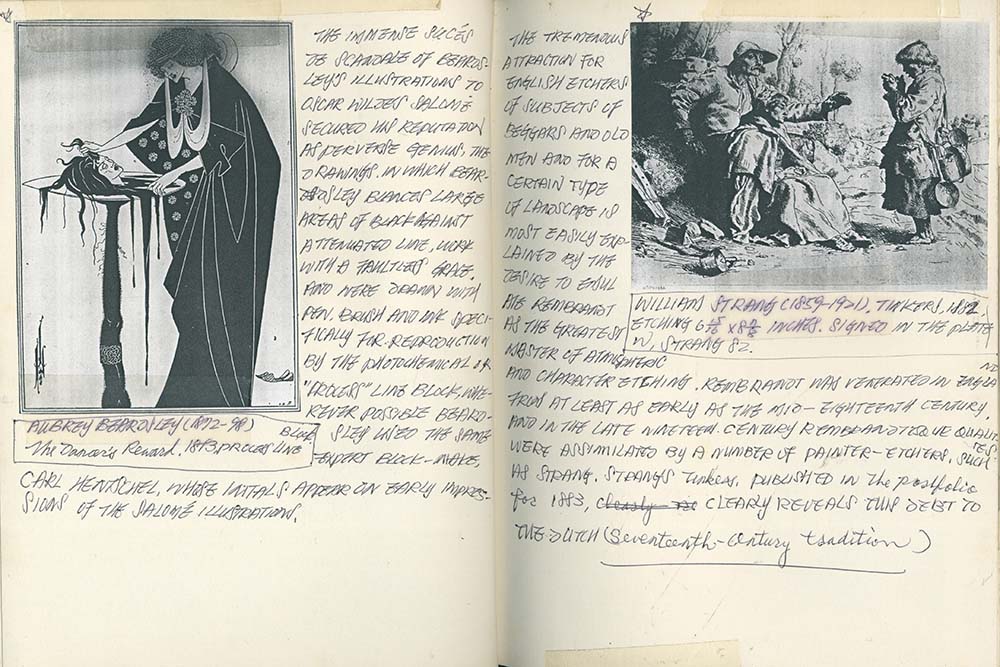 THE IMMENSE SUCÉS
DE SCANDALE OF BEARDS-
LEY'S ILLUSTRATIONS TO
OSCAR WILDE'S SALOMÉ
SECURED HIS REPUTATION
AS PERVERSE GENIUS. THE
DRAWINGS, IN WHICH BEAR-
DSLEY BLANCES LARGE
AREAS OF BLACK AGAINST
ATTENUATED LINE, WORK
WITH A FAULTLESS GRACE.
AND WERE DRAWN WITH
PEN, BRUSH AND INK SPECI-
FICALLY FOR REPRODUCTION
BY THE PHOTOCHEMICAL OR
"PROCESS" LINE BLOCK, WHE-
REVER POSSIBLE BEARD-
SLEY USED THE SAME
EXPERT BLOCK-MAKE,
CARL HENTSCHEL, WHOSE INITIALS APPEAR ON EARLY IMPRES-
SIONS OF THE SALOMÉ ILLUSTRATIONS.
AUBREY BEARDSLEY (1872-98)
The Dancer's Reward. 1893, PROCESS LINE
Block
THE TREMENDOUS
ATTRACTION FOR
ENGLISH ETCHERS
OF SUBJECTS OF
BEGGARS AND OLD
MEN AND FOR A
CERTAIN TYPE
OF LANDSCAPE IS
MOST EASILY EXP-
LAINED BY THE
DESIRE TO EMUL
ATE REMBRANDT
AS THE GREATEST
MASTER OF ATMOSPHERIC
AND CHARACTER ETCHING. REMBRANDT WAS VENERATED IN ENGLA
ND
FROM AT LEAST AS EARLY AS THE MID-EIGHTEENTH CENTURY.
AND IN THE LATE NINETEEN. CENTURY REMBRANDTESQUE QUALIT
IES
WERE ASSIMILATED BY A NUMBER OF PAINTER-ETCHERS, SUCH
AS STRANG. STRANG'S Tinkers, PUBLISHED IN The Portfolio
for 1883, CLEARLY REVEALS THIS DEBT TO
THE DUTCH (Seventeenth-Century tradition)
WILLIAM STRANG (1859-1921). TINKERS, 1882
ETCHING 6 X 8 INCHES. SIGNED IN THE PLATE
W. STRANG 82.